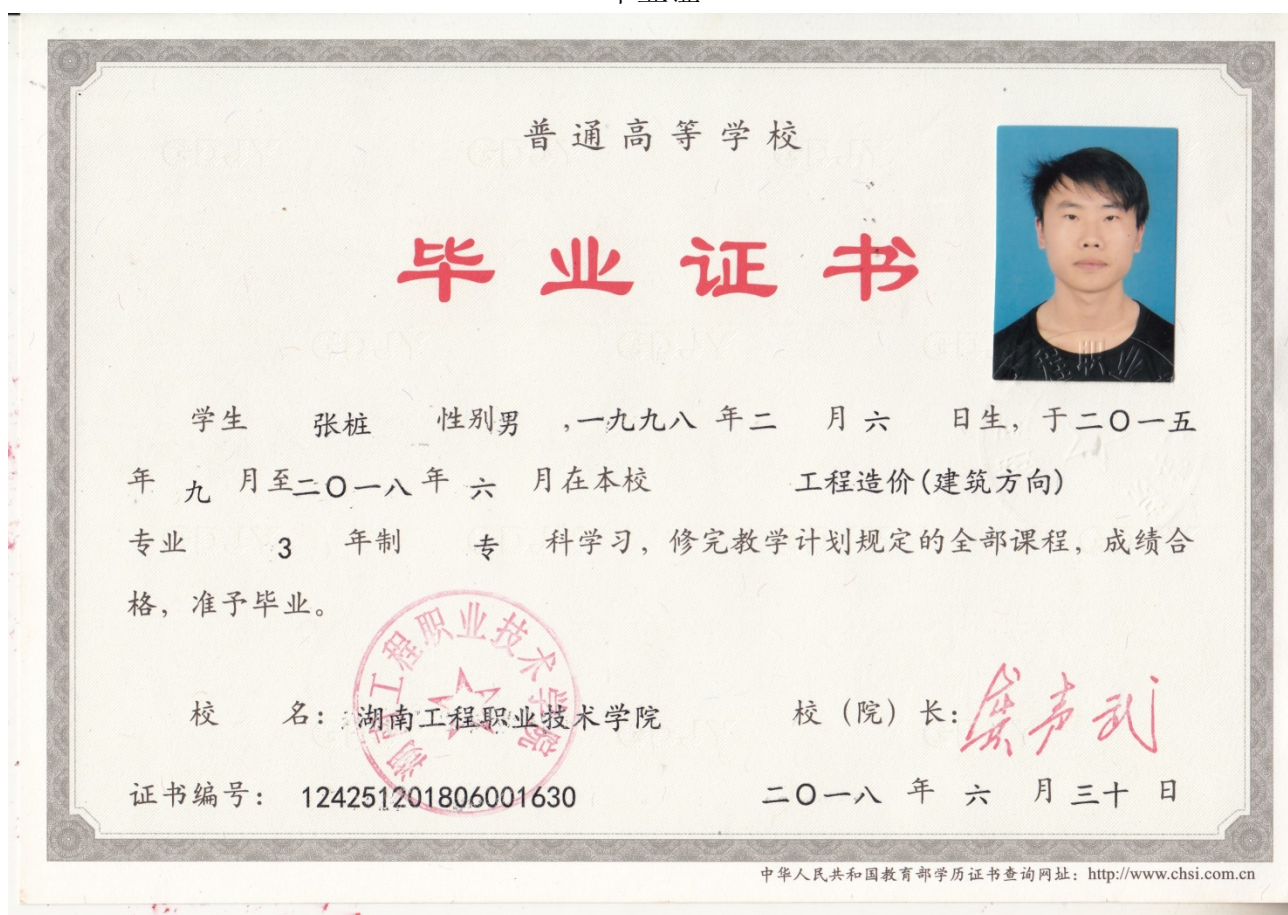 普通高等学校
毕业证书
学生 张桩 性别男 ,一九九八 年二 月 六 日生, 于二〇一五
年 九 月至二〇一八 年 六 月在本校 工程造价(建筑方向)
专业 3 年制 专 科学习, 修完教学计划规定的全部课程, 成绩合
格, 准予毕业。
湖南工程职业技术学院
校 名: 湖南工程职业技术学院 校 (院) 长:
证书编号: 124251201806001630 二〇一八 年 六 月 三十 日
中华人民共和国教育部学历证书查询网址: http://www.chsi.com.cn